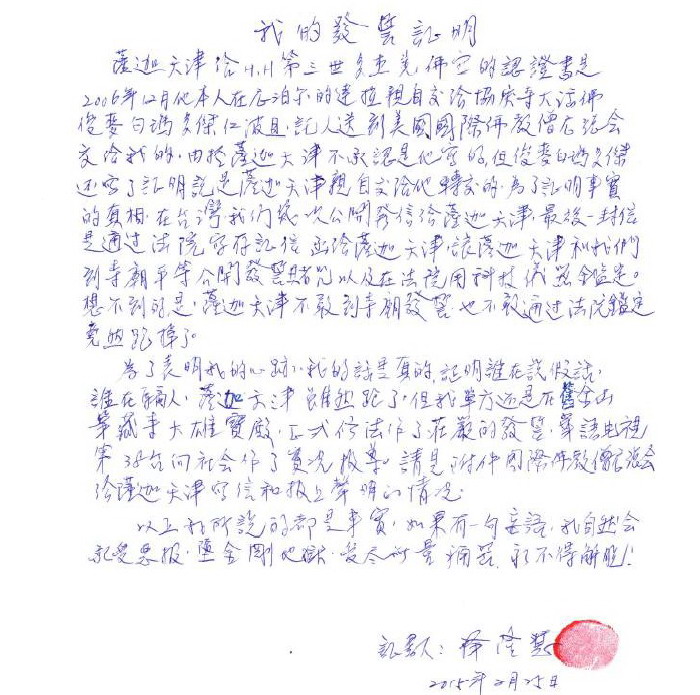 我的發誓証明
薩迦天津给H.H第三世多杰羌佛写的認證書是
2006年12月他本人在尼泊尔的達拉親自交給协庆寺大活佛
俊麥白瑪多傑仁波且，託人送到美國國際佛教僧尼总会
交给我的，由於薩迦天津不承認是他写的，但俊麥白瑪多傑
还写了証明說是薩迦天津親自交给他轉交的，为了証明事實
的真相，在台灣我们幾次公開發信给薩迦天津，最後一封信
是通过法院寄存証信函给薩迦天津，讓薩迦天津和我們
到寺廟平等公開發誓賭咒以及在法院用科技儀器鑑定。
想不到的是，薩迦天津不敢到寺廟發誓也不敢通过法院鑑定
竟然跑掉了。
为了表明我的心跡，我的話是真的，証明誰在說假話，
誰在騙人，薩迦天津雖然跑了，但我單方还是在舊金山
華藏寺大雄寶殿，正式修法作了莊嚴的發誓，華語电視
第38台向社会作了實况报導，請見附件国際佛教僧尼总会
给薩迦天津写信和报上聲明的情况。
以上我所說的都是事實，如果有一句妄語，我自然会
遭受恶报，墮金剛地獄，受尽无量痛苦，永不得解脱！
証明人：釋隆慧
2015年2月25日